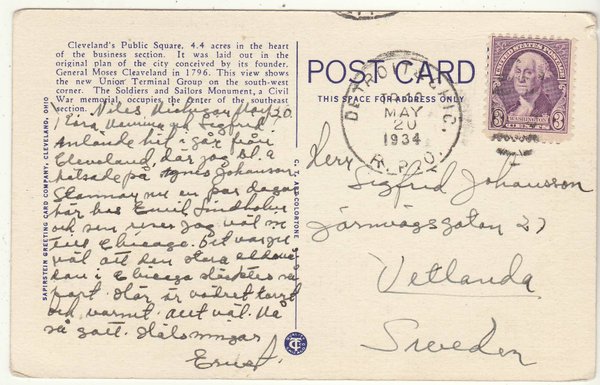 Cleveland's Public Square, 4.4 acres in the heart
of the business section. It was laid out in the
original plan of the city conceived by its founder,
General Moses Cleaveland in 1796. This view shows
the new Union Terminal Group on the south-west
corner. The Soldiers and Sailors Monument, a Civil
War memorial, occupies the center of the southeast
section.
Niles Michigan May 20
Kära Vänner
Anlände hit i går från
Cleveland, där jag bl. a
hälsade på Agnes Johanson.
Stannar nu en par dagar
här hos Emil Lindholm
och sen reser jag väl
till Chicago. Det var ju
väl att den stora eldsvådan
i Chicago släcktes så
fort. Här är vädret torrt
och varmt. Allt väl. Må
så gott. Hälsningar
Ernst.
SAPIRSTEIN GREETING CARD COMPANY, CLEVELAND, OHIO
C. T. ART-COLORTONE
POST CARD
THIS SPACE FOR ADDRESS ONLY
MAY
20
1934
R.P.O.
UNITED STATES POSTAGE
3 WASHINGTON 3
CENTS
Herr Sigfrid Johansson
Järnvägsgatan 27
Vetlanda
Sweden